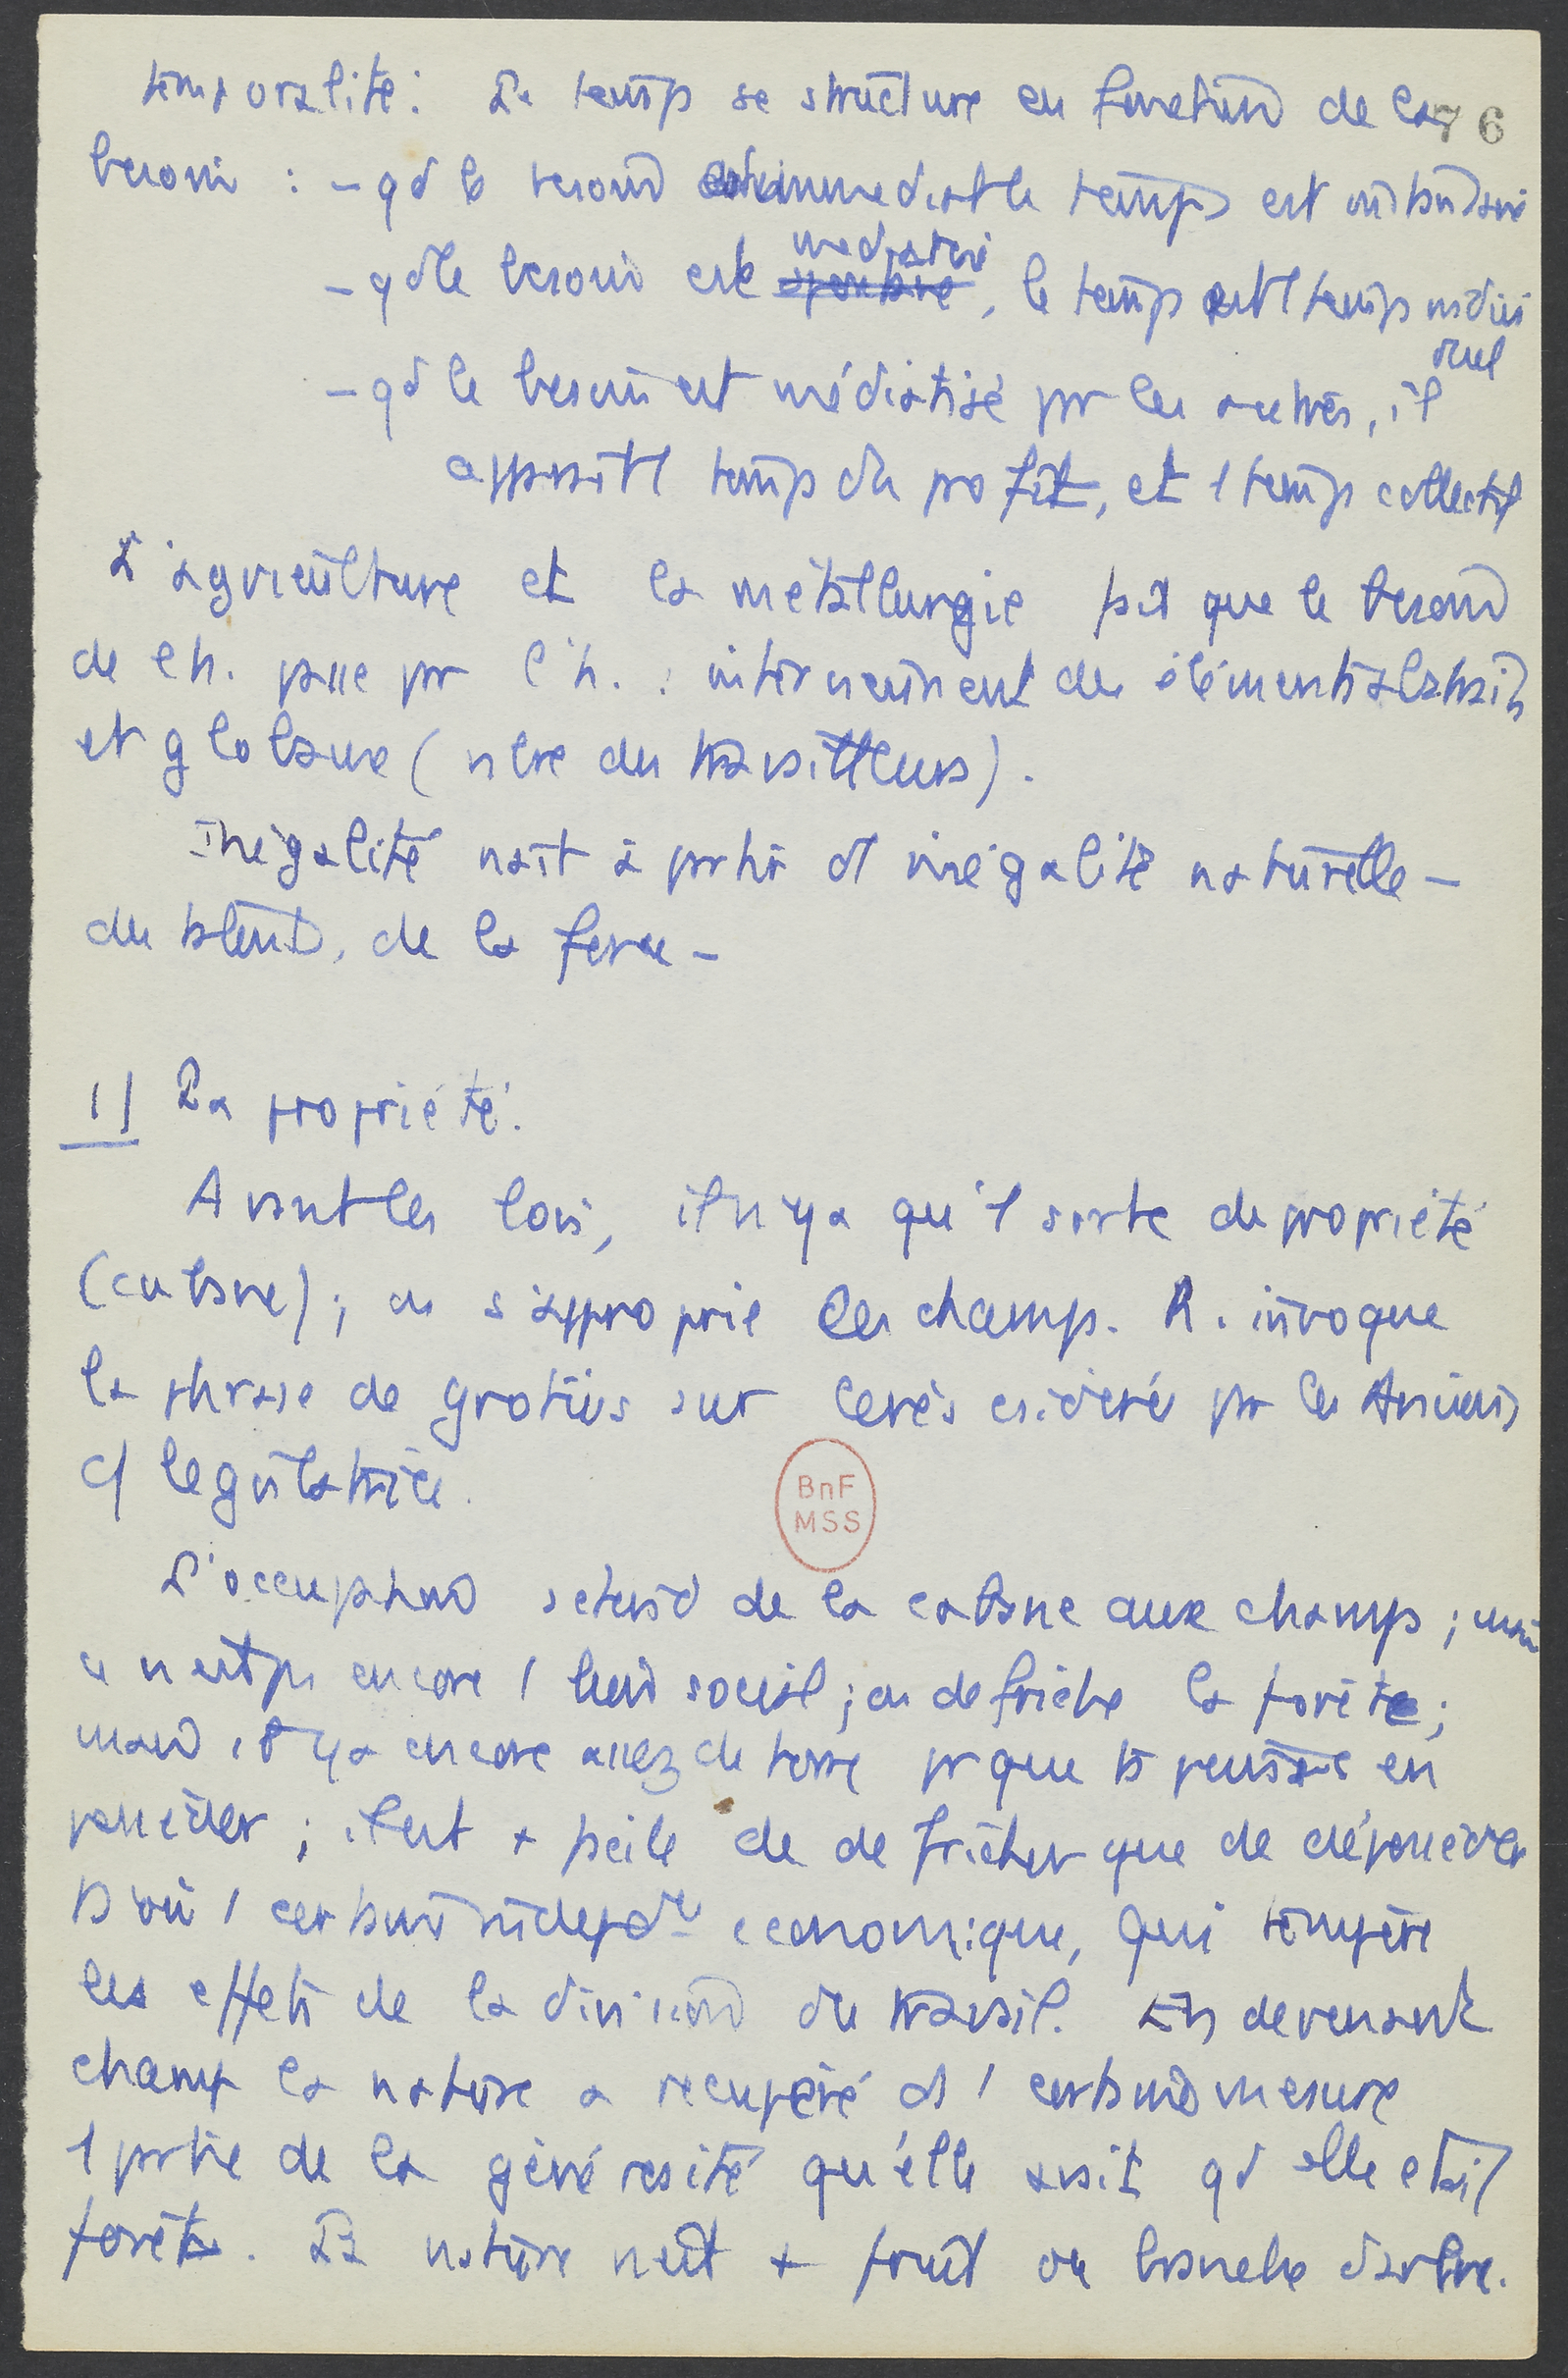 temporalité : Le temps se structure en fonction de la 76
besoin : - qd le besoin est immédiat le temps est instantané
médiatisé
- qd le besoin est , le temps est 1 temps indivi
duel
- qd le besoin est médiatisé pr les autres, il
apparaît 1 temps du profit, et 1 temps collectif
L'agriculture et la métallurgie font que le besoin
de l'h. passe pr l'h. : interviennent des éléments
et globaux (nbre des travailleurs).
Inégalité naît à partir d' 1 inégalité naturelle -
du talent, de la force -
1/ La propriété.
Avant les lois, il n'y a qu'1 sorte de propriété
(cabane) ; on s'approprie les champs. R. invoque
la phrase de Grotius sur Cérès csidérée pr les Anciens
c/ législatrice.
L'occupation s'étend de la cabane aux champs ; mais
ce n'est pas encore 1 lien social ; on défriche la forête ;
mais il y a encore assez de terre pr que ts puissent en
posséder ; il est + facile de défricher que de déposséder
D'où 1 certaine indépdce économique, qui tempère
les effets de la division du travail. En devenant
champ la nature a récupéré ds 1 certaine mesure
1 partie de la générosité qu'elle avait qd elle était
forêt. La nature n'est + fruit ou branche d'arbre.
BnF
MSS